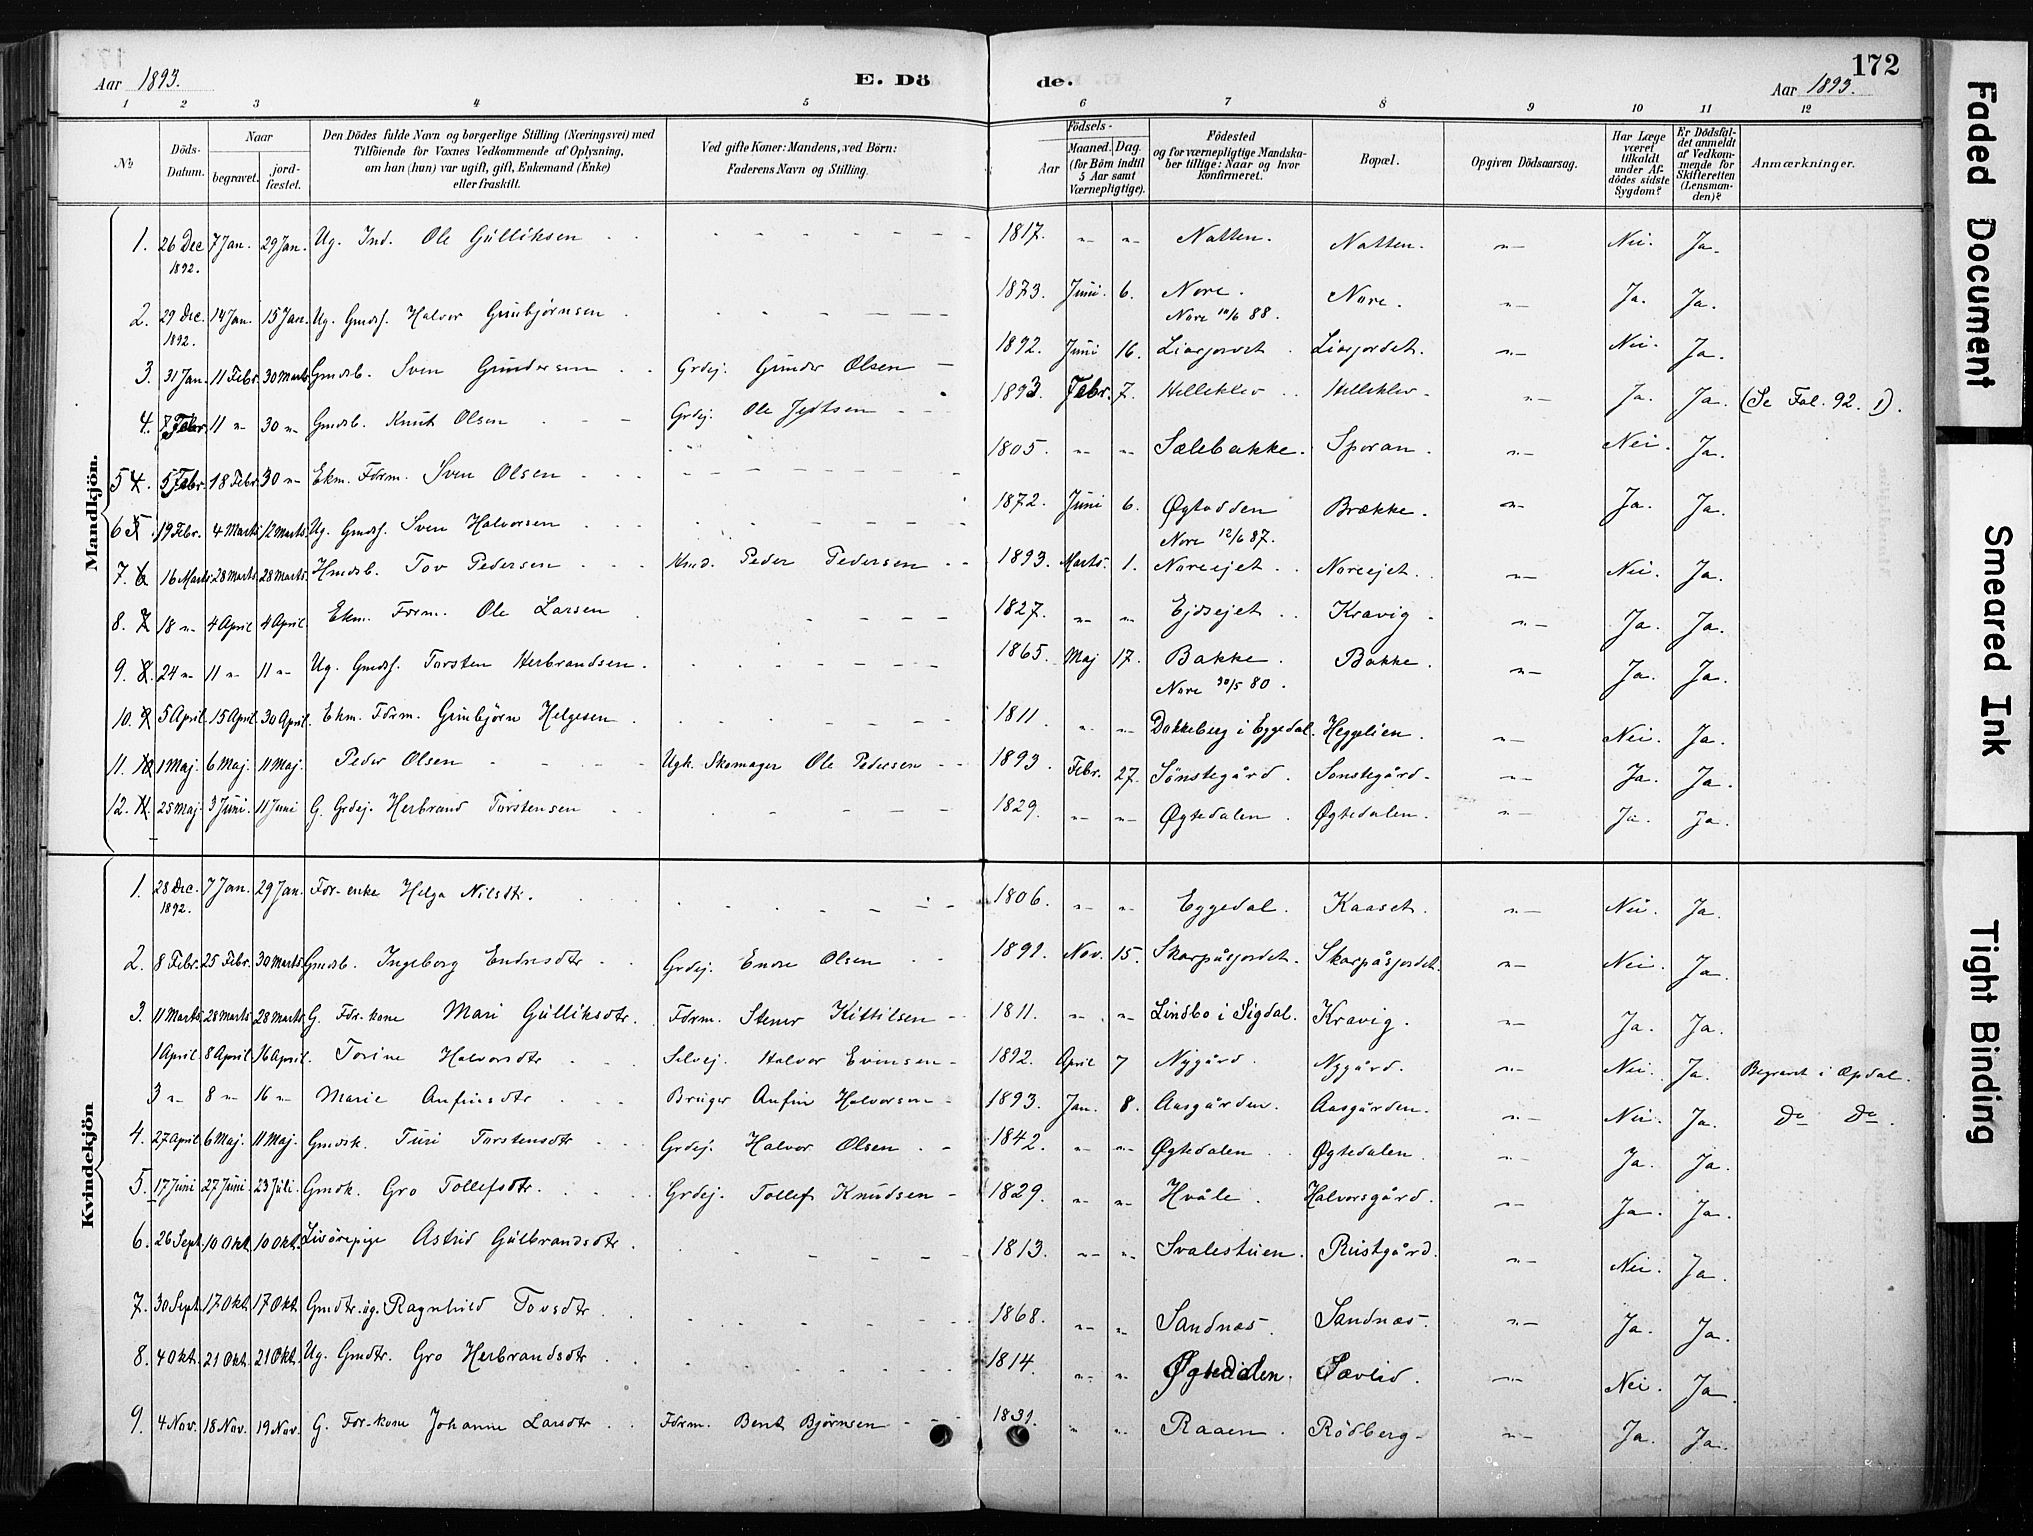 172
Aar 1893. E. Dö de. Aar 1893.
1 2 3 4 5 6 7 8 9 10 11 12
No Döds-Datum. Naar begravet. jordfæstet. Den Dödes fulde Navn og borgerlige Stilling (Næringsvei) med Tilföiende for Voxnes Vedkommende af Oplysning, om han (hun) var ugift, gift, Enkemand (Enke) eller fraskilt. Ved gifte Koner: Mandens, ved Börn: Faderens Navn og Stilling. Födsels- Aar Maaned. Dag. (for Börn indtil 5 Aar samt Værnepligtige). Födested og for værnepligtige Mandskaber tillige: Naar og hvor konfirmeret. Bopæl. Opgiven Dödsaarsag. Har Læge været tilkaldt under Afdödes sidste Sygdom? Er Dödsfaldet anmeldt af Vedkommende for Skifteretten (Lensmanden)? Anmærkninger.
Mandkjön.
1. 26 Dec 1892. 7 Jan. 29 Jan. Ug. Ind. Ole Gulliksen 1817. " " Natten. Natten. " Nei. Ja.
2. 29 Dec. 1892. 14 Jan. 15 Jan. Ug. Gmdsf. Halvor Gunbjørnsen 1873. Juni. 6. Nore. Nore 10/6 88. Nore. " Ja. Ja.
3. 31 Jan. 11 Febr. 30 Marts Gmdsb. Sven Gundersen Grdej. Gunder Olsen 1892. Juni 16. Liagjordet. Liagjordet. " Nei. Ja.
4. 7 Febr. 11 " 30 " Gmdsb. Knut Olsen Grdej. Ole 1893 Febr. 7. Helleklev Helleklev " Ja. Ja. (Se Fol. 92. 1).
5 4. 5 Febr. 18 Febr. 30 " Ekm. Fdrm. Sven Olsen 1805. " " Sælebakke. Sporan. " Nei. Ja.
6 5. 19 Febr. 4 Marts 12 Marts Ug. Gmdsf. Sven Halvorsen 1872. Juni 6. Øgtedden Nore 12/6 87. Brække. " Ja. Ja.
7. 6 16 Marts 28 Marts 28 Marts. Hmdsb. Tov Pedersen Hmd. Peder Pedersen 1893. Marts. 1. Noreejet. Noreejet. " Nei. Ja.
8. 7 18 " 4 April 4 April Ekm. Fdrm. Ole Larsen 1827. " " Ejdsejet. Kravig. " Ja. Ja.
9. 8. 24 " 11 " 11 " Ug. Gmdsf. Torsten Herbrandsen. 1865. Maj 17. Bakke. Nore 30/5 80. Bakke. " Ja. Ja.
10. 9 5 April. 15 April. 30 April. Ekm. Fdrm. Gunbjørn Helgesen. 1811. " " Dokkeberg i Eggedal. Heggelien. " Nei. Ja.
11. 10 1 Maj. 6 Maj. 11 Maj. Peder Olsen Ugk. Skomager Ole Pedersen 1893. Febr. 27. Sønstegård. Sønstegård. " Ja. Ja.
12. 11. 25 Maj. 3 Juni. 11 Juni G. Grdej. Herbrand Torstensen 1829. " " Øgtedalen. Øgtedalen. " Ja. Ja.
Kvindekjön
1. 28 Dec. 1892. 7 Jan. 29 Jan. Fdr-enke Helga Nilsdtr. 1806. " " Eggedal. Kaaset. " Nei. Ja.
2. 8 Febr. 25 Febr. 30 Marts Gmdsb. Ingeborg Endresdtr Grdej. Endre Olsen 1891. Nov. 15. Skarpåsjordet. Skarpåsjordet. " Nei. Ja.
3. 11 Marts 28 Marts 28 Marts G. Fdr-kone Mari Gulliksdtr. Fdrm. Stener Kittilsen 1811. " " Lindbo i Sigdal. Kravig. " Ja. Ja.
1 April. 8 April 16 April. Torine Halvorsdtr Selvej. Halvor Evensen 1892. April 7 Nygård. Nygård. " Nei. Ja. Begravet i Opdal.
3 " 8 " 16 " Marie Anfinsdtr Bruger Anfin Halvorsen 1893. Jan. 8. Aasgården. Aasgården. " Nei. Ja. Do Do.
4. 27 April 6 Maj. 11 Maj. Gmdsk. Turi Torstensdtr Grdej. Halvor Olsen 1842. " " Øgtedalen Øgtedalen. " Ja. Ja.
5. 17 Juni 27 Juni 23 Juli. Gmdk. Gro Tollefsdtr. Grdej. Tollef Knudsen 1829. " " Hvåle. Halvorsgård. " Ja. Ja.
6. 26 Sept. 10 Okt. 10 Okt. Livörepige Astrid Gulbrandsdtr. 1813. " " Svalestuen. Rustgård. " Nei. Ja.
7. 30 Sept. 17 Okt. 17 Okt. Gmdtr. ug. Ragnhild Tovsdtr. 1868. " " Sandnæs. Sandnæs. " Ja. Ja.
8. 4 Okt. 21 Okt. 21 Okt. Ug. Gmdtr. Gro Herbrandsdtr 1814. " " Øgtedalen. Sævlid. " Nei. Ja.
9. 4 Nov. 18 Nov. 19 Nov. G. Fdr-kone Johanne Larsdtr Fdrm. Bent Bjørnsen 1831. " " Raaen. Rödberg " Ja. Ja.
Faded Document
Smeared Ink
Tight Binding